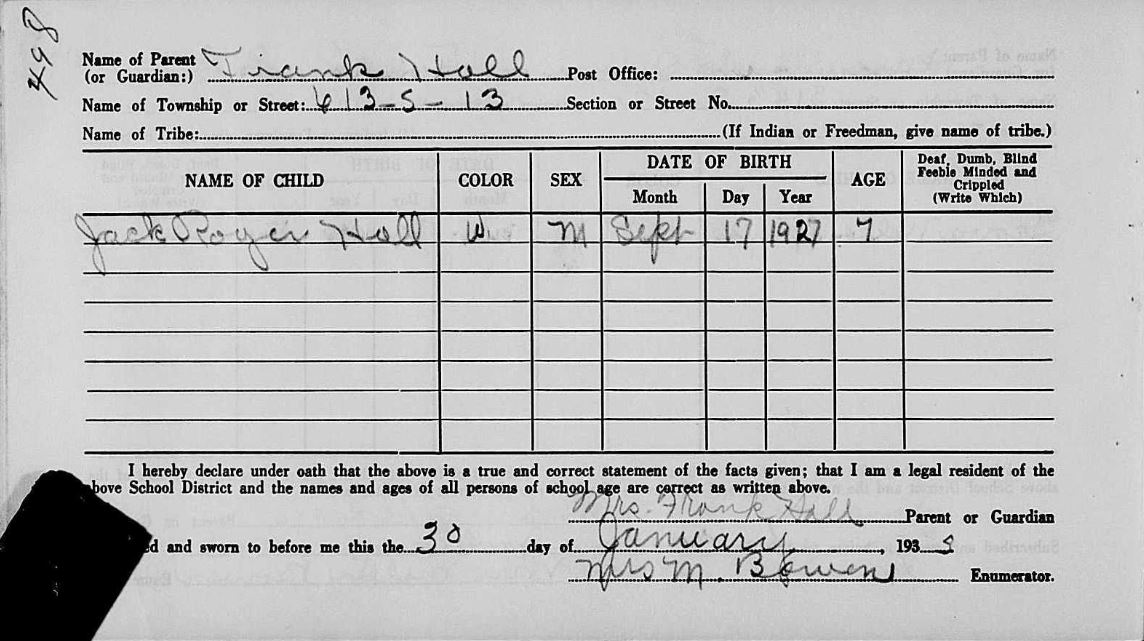 498
Name of Parent Frank Hall Post Office:
(or Guardian:)
Name of Township or Street: 613-S-13 Section or Street No.
Name of Tribe: (If Indian or Freedman, give name of tribe.)
NAME OF CHILD COLOR SEX DATE OF BIRTH AGE Deaf, Dumb, Blind
Feeble Minded and
Crippled
(Write Which)
Month Day Year
Jack Roger Hall W M Sept 17 1927 7
I hereby declare under oath that the above is a true and correct statement of the facts given; that I am a legal resident of the
above School District and the names and ages of all persons of school age are correct as written above.
Mrs. Frank Hall Parent or Guardian
and sworn to before me this the 30 day of January, 1935
Mrs M. Bowen Enumerator.